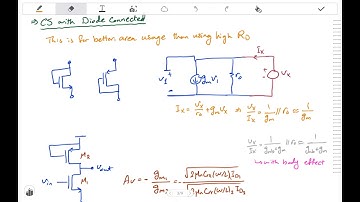 ⇒ CS with Diode Connected
This is for better area usage than using high R_D
I_x
V_1 g_m V_1 r_o I V_x
I_x = V_x/r_o + g_m V_x ⇒ V_x/I_x = 1/g_m // r_o ≈ 1/g_m
V_x/I_x = 1/(g_mb+g_m) // r_o ≈ 1/(g_mb+g_m)
with body effect
M_2
V_out
V_in M_1
A_v = - g_m1/g_m2 =